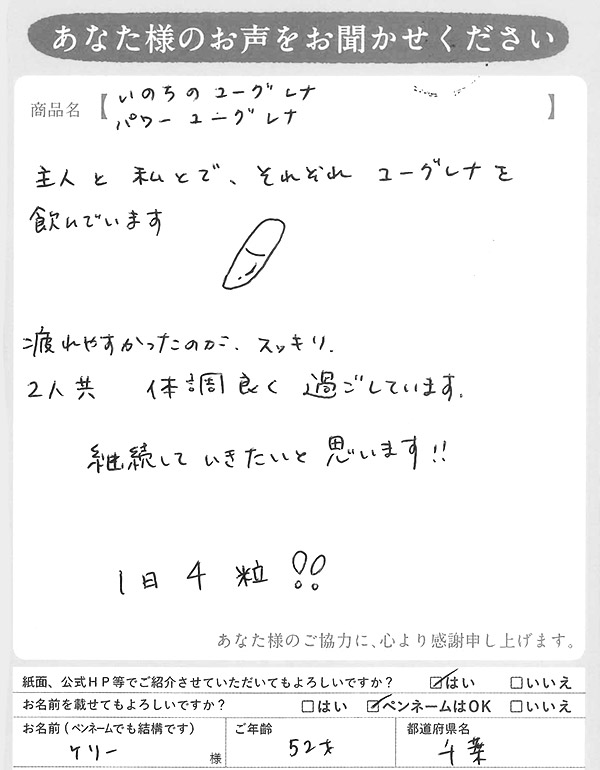 あなた様のお声をお聞かせください
商品名【いのちのユーグレナ
パワーユーグレナ】
主人と私とで、それぞれユーグレナを
飲んでいます
疲れやすかったのが、スッキリ.
2人共 体調良く過ごしています.
継続していきたいと思います!!
1日4粒!!
あなた様のご協力に、心より感謝申し上げます。
紙面、公式HP等でご紹介させていただいてもよろしいですか? ☑はい □いいえ
お名前を載せてもよろしいですか? □はい ☑ペンネームはOK □いいえ
お名前(ペンネームでも結構です) ご年齢 都道府県名
ケリー 様 52才 千葉